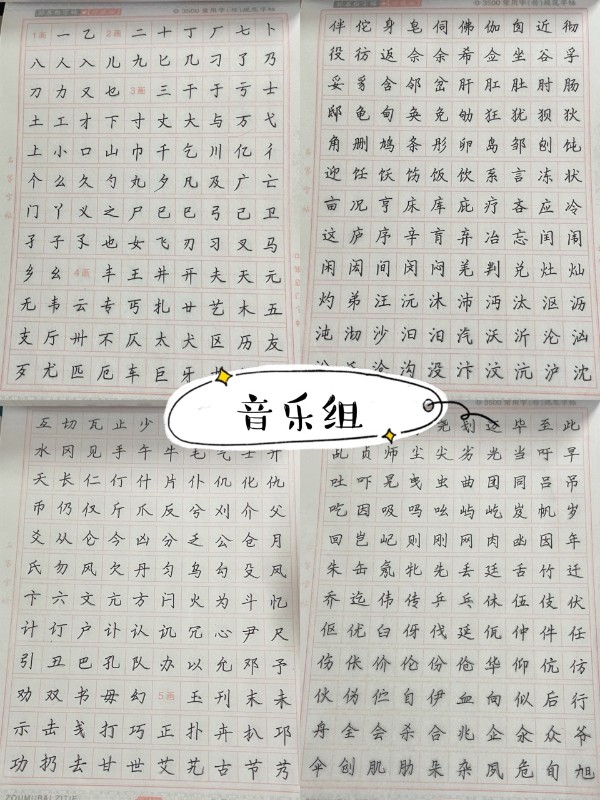 1画 一 乙 2画 二 十 丁 厂 七 卜
八 人 入 儿 九 匕 几 刁 了 乃
刀 力 又 乜 3画 三 干 于 亏 士
土 工 才 下 寸 丈 大 与 万 弋
上 小 口 山 巾 千 乞 川 亿 彳
个 么 久 勺 丸 夕 凡 及 广 亡
门 丫 义 之 尸 巳 弓 己 卫
孑 子 孓 也 女 飞 刃 习 叉 马
乡 幺 4画 丰 王 井 开 夫 天 元
无 韦 云 专 丐 扎 廿 艺 木 五
支 厅 卅 不 仄 太 犬 区 历 友
歹 尤 匹 厄 车 巨 牙
伴 佗 身 皂 伺 佛 伽 囱 近 彻
役 彷 返 佘 余 希 佥 坐 谷 孚
妥 豸 含 邻 岔 肝 肛 肚 肘 肠
邸 龟 甸 奂 免 劬 狂 犹 狈 狄
角 删 鸠 条 彤 卵 岛 邹 刨 饨
迎 饪 饫 饬 饭 饮 系 言 冻 状
亩 况 亨 床 库 庇 疗 吝 应 冷
这 庐 序 辛 育 弃 冶 忘 闰 闱
闲 闳 间 闵 闷 羌 判 兑 灶 灿
灼 弟 汪 沅 沐 沛 沔 汰 沤 沥
沌 沏 沙 汩 汨 汽 沃 沂 沦 汹
沧 沟 没 汴 汶 沆 沪 沈
音乐组
互 切 瓦 止 少
水 冈 见 手 午 牛 毛 气 壬 升
夭 长 仁 仃 什 片 仆 仉 化 仇
币 仍 仅 斤 爪 反 兮 刈 介 父
爻 从 仑 今 凶 分 乏 公 仓 月
氏 勿 风 欠 丹 匀 乌 勾 殳 凤
卞 六 文 亢 方 闩 火 为 斗 忆
计 订 户 讣 认 讥 冗 心 尹 尺
引 丑 巴 孔 队 办 以 允 邓 予
劝 双 书 毋 幻 5画 玉 刊 末 未
示 击 戋 打 巧 正 扑 卉 扒 邛
功 扔 去 甘 世 艾 艽 古 节 艿
尧 划 迈 毕 至 此
乩 贞 师 尘 尖 劣 光 当 吁 早
吐 吓 晃 曳 虫 曲 团 同 吕 吊
吃 因 吸 吗 吆 屿 屹 岌 帆 岁
回 岂 屺 则 刚 网 肉 凼 囡 年
朱 缶 氖 牝 先 丢 廷 舌 竹 迁
乔 迄 伟 传 乒 乓 休 伍 伎 伏
伛 优 臼 伢 伐 延 佤 仲 件 任
伤 伥 价 伦 份 伧 华 仰 伉 仿
伙 伪 伫 自 伊 血 向 似 后 行
舟 全 会 杀 合 兆 企 汆 众 爷
伞 创 肌 肋 朵 杂 夙 危 旬 旭